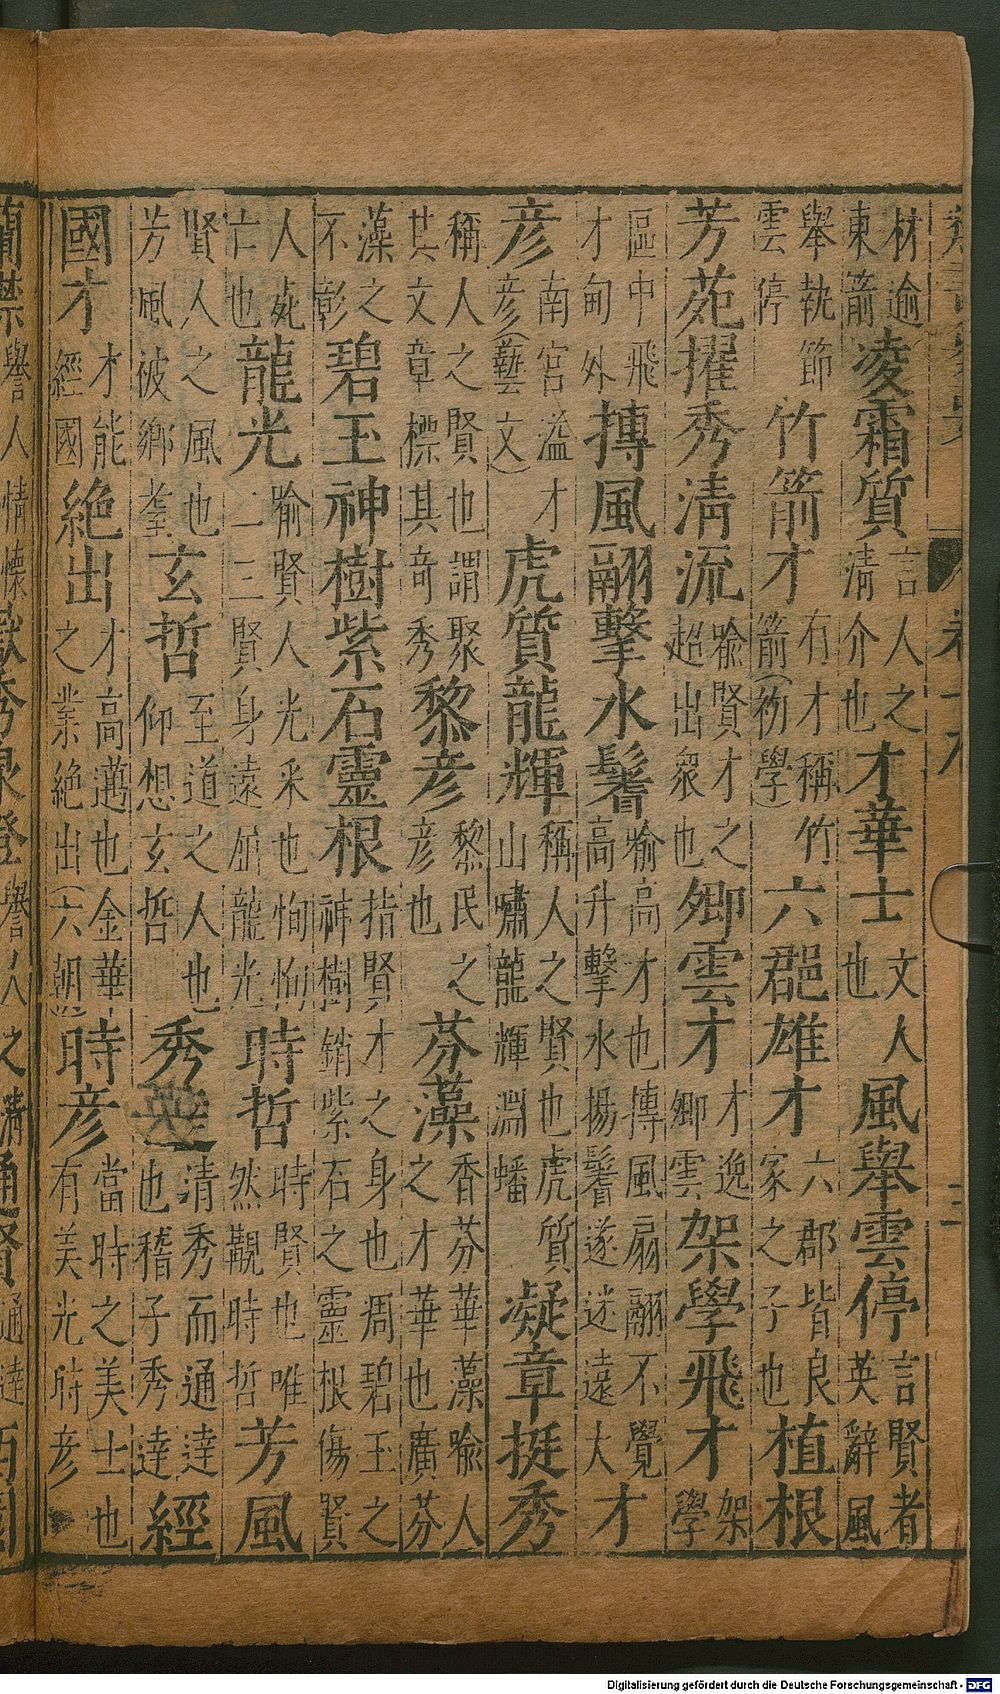 材逾東箭凌霜質言人之清介也才華士文人也風舉雲停言賢者英辭風
舉執節雲停竹箭才有才稱竹箭(初學)六郡雄才六郡皆良家之子也植根
芳苑擢秀清流喻賢才之超出衆也卿雲才才逸卿雲架學飛才架學
區中飛才甸外搏風翮擊水鬐喻高才也搏風扇翮不覺高升擊水揚鬐遂迷遠大才
彦南宮溢才彦(藝文)虎質龍輝稱人之賢也虎質山嘯龍輝淵蟠凝章挺秀
稱人之賢也謂聚其文章標其奇秀黎彦黎民之彦也芬藻香芬華藻喻人之才華也廣芬
藻之不彰碧玉神樹紫石靈根指賢才之身也凋碧玉之神樹銷紫石之靈根傷賢
人㱙亡也龍光喻賢人光采也恂恂一二三賢身遠龍光時哲時賢也唯然觀時哲芳風
賢人之風也芳風被鄉玄哲至道之人也仰想玄哲秀達清秀而通達也稽子秀達經
國才才能經國絕出才高邁也金華之業絕出(六朝)時彦當時之美士也有美光時彦
蘭禁譽人情懷秀泉澄譽人之清通賢通達
Digitalisierung gefördert durch die Deutsche Forschungsgemeinschaft - DFG